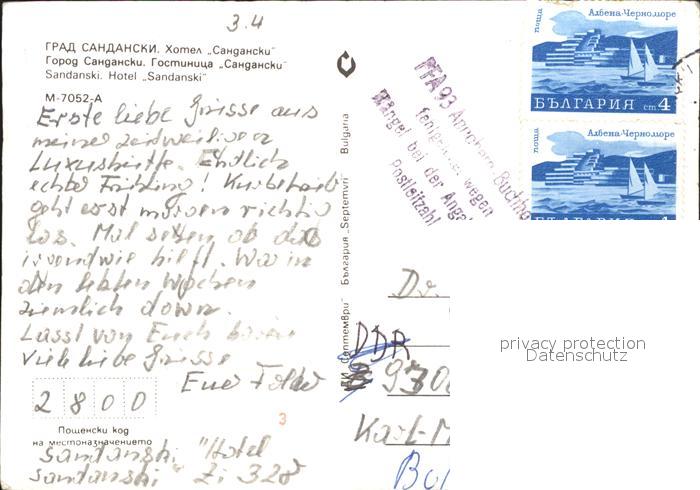 3.4
ГРАД САНДАНСКИ. Хотел „Сандански"
Город Сандански. Гостиница „Сандански"
Sandanski. Hotel „Sandanski"
М-7052-А
Erste liebe Grüsse aus
meiner zeitweiligen
Luxushütte. Endlich
echter Frühling! Kurbetrieb
geht erst morgen richtig
los. Mal sehen ob das
irgendwie hilft. War in
den letzten Wochen
ziemlich down.
Lasst von Euch hören
Viele liebe Grüsse
Euer
2800
Пощенски код
на местоназначението
Sandanski "Hotel
Sandanski" Zi 328
3
ДКИ „Септември" България „Septemvri" Bulgaria
PFA 93 Annahm Buchho
wegen
Mängel bei der Anga
Postleitzahl
поща
Албена-Черноморе
БЪЛГАРИЯ ст 4
поща
Албена-Черноморе
БЪЛГАРИЯ ст 4
Dr.
DDR
930
Karl-M
privacy protection
Datenschutz